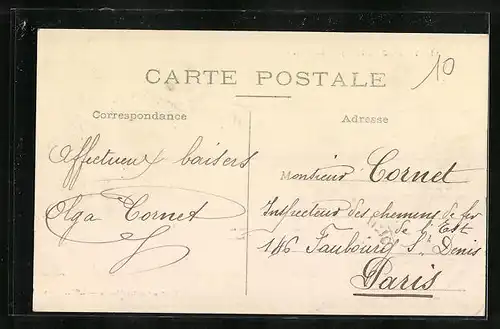 10
CARTE POSTALE
Correspondance
Adresse
Affectueux baisers
Olga Cornet
Monsieur Cornet
Inspecteur des chemins de fer
de l'Est
146 Faubourg St Denis
Paris